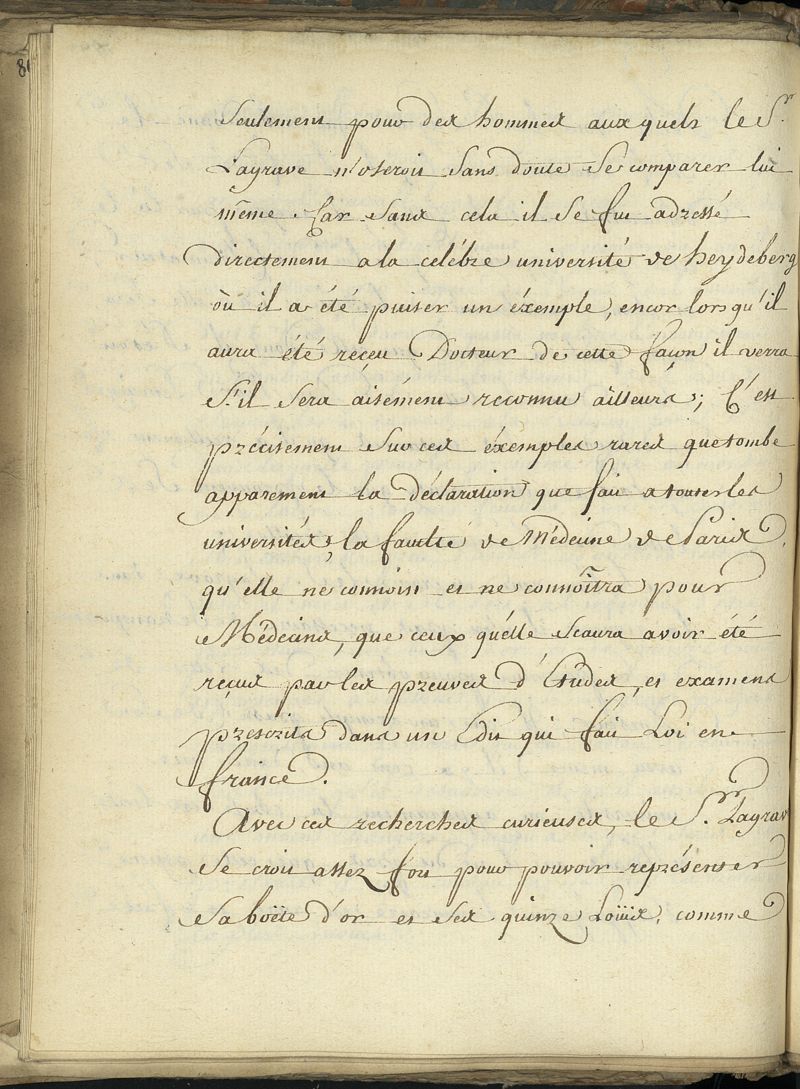 8
Seulement pour des hommes aux quels le Sr.
Lagrave n'oseroit sans doute se comparer lui
même. Car sans cela il se fut adressé
directement a la celébre université de heydeberg
où il a été puiser un éxemple, encor lorsqu'il
aura été reçeu Docteur de cette façon il verra
S'il sera aisément reconnu ailleurs; C'est
précisement sur ces éxemples rares que tombe
apparement la déclaration que fait a toutes les
universités, la faculté de Médecine de Paris,
qu'elle ne connoit et ne connoîtra pour
Médecins, que ceux qu'élle scaura avoir été
reçus par les preuves d'Etudes, et examens
prescrits dans un Edit qui fait Loi en
france.
Avec ces recherches curieuses, le Sr. Lagrav
se croit assez fort pour pouvoir représenter
Sa boëte d'or et ses quinze Loüis, comme